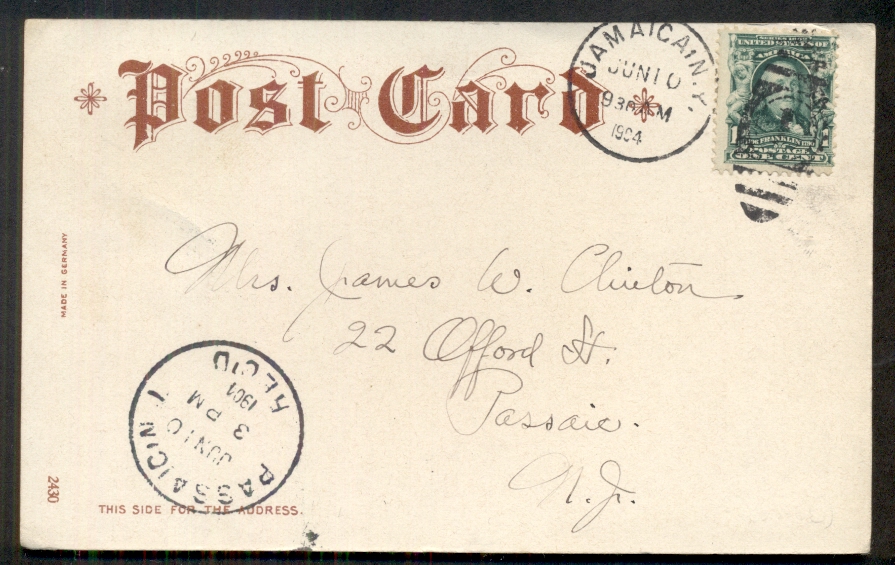 Post Card
JAMAICA, N.Y.
JUN 10
930 AM
1904
SERIES 1902
UNITED STATES OF
AMERICA
FRANKLIN
POSTAGE
ONE CENT
MADE IN GERMANY
Mrs. James W. Clinton
22 Offord St.
Passaic.
N.J.
PASSAIC, N J
JUN 10
3 PM
1904
REC'D
2430
THIS SIDE FOR THE ADDRESS.